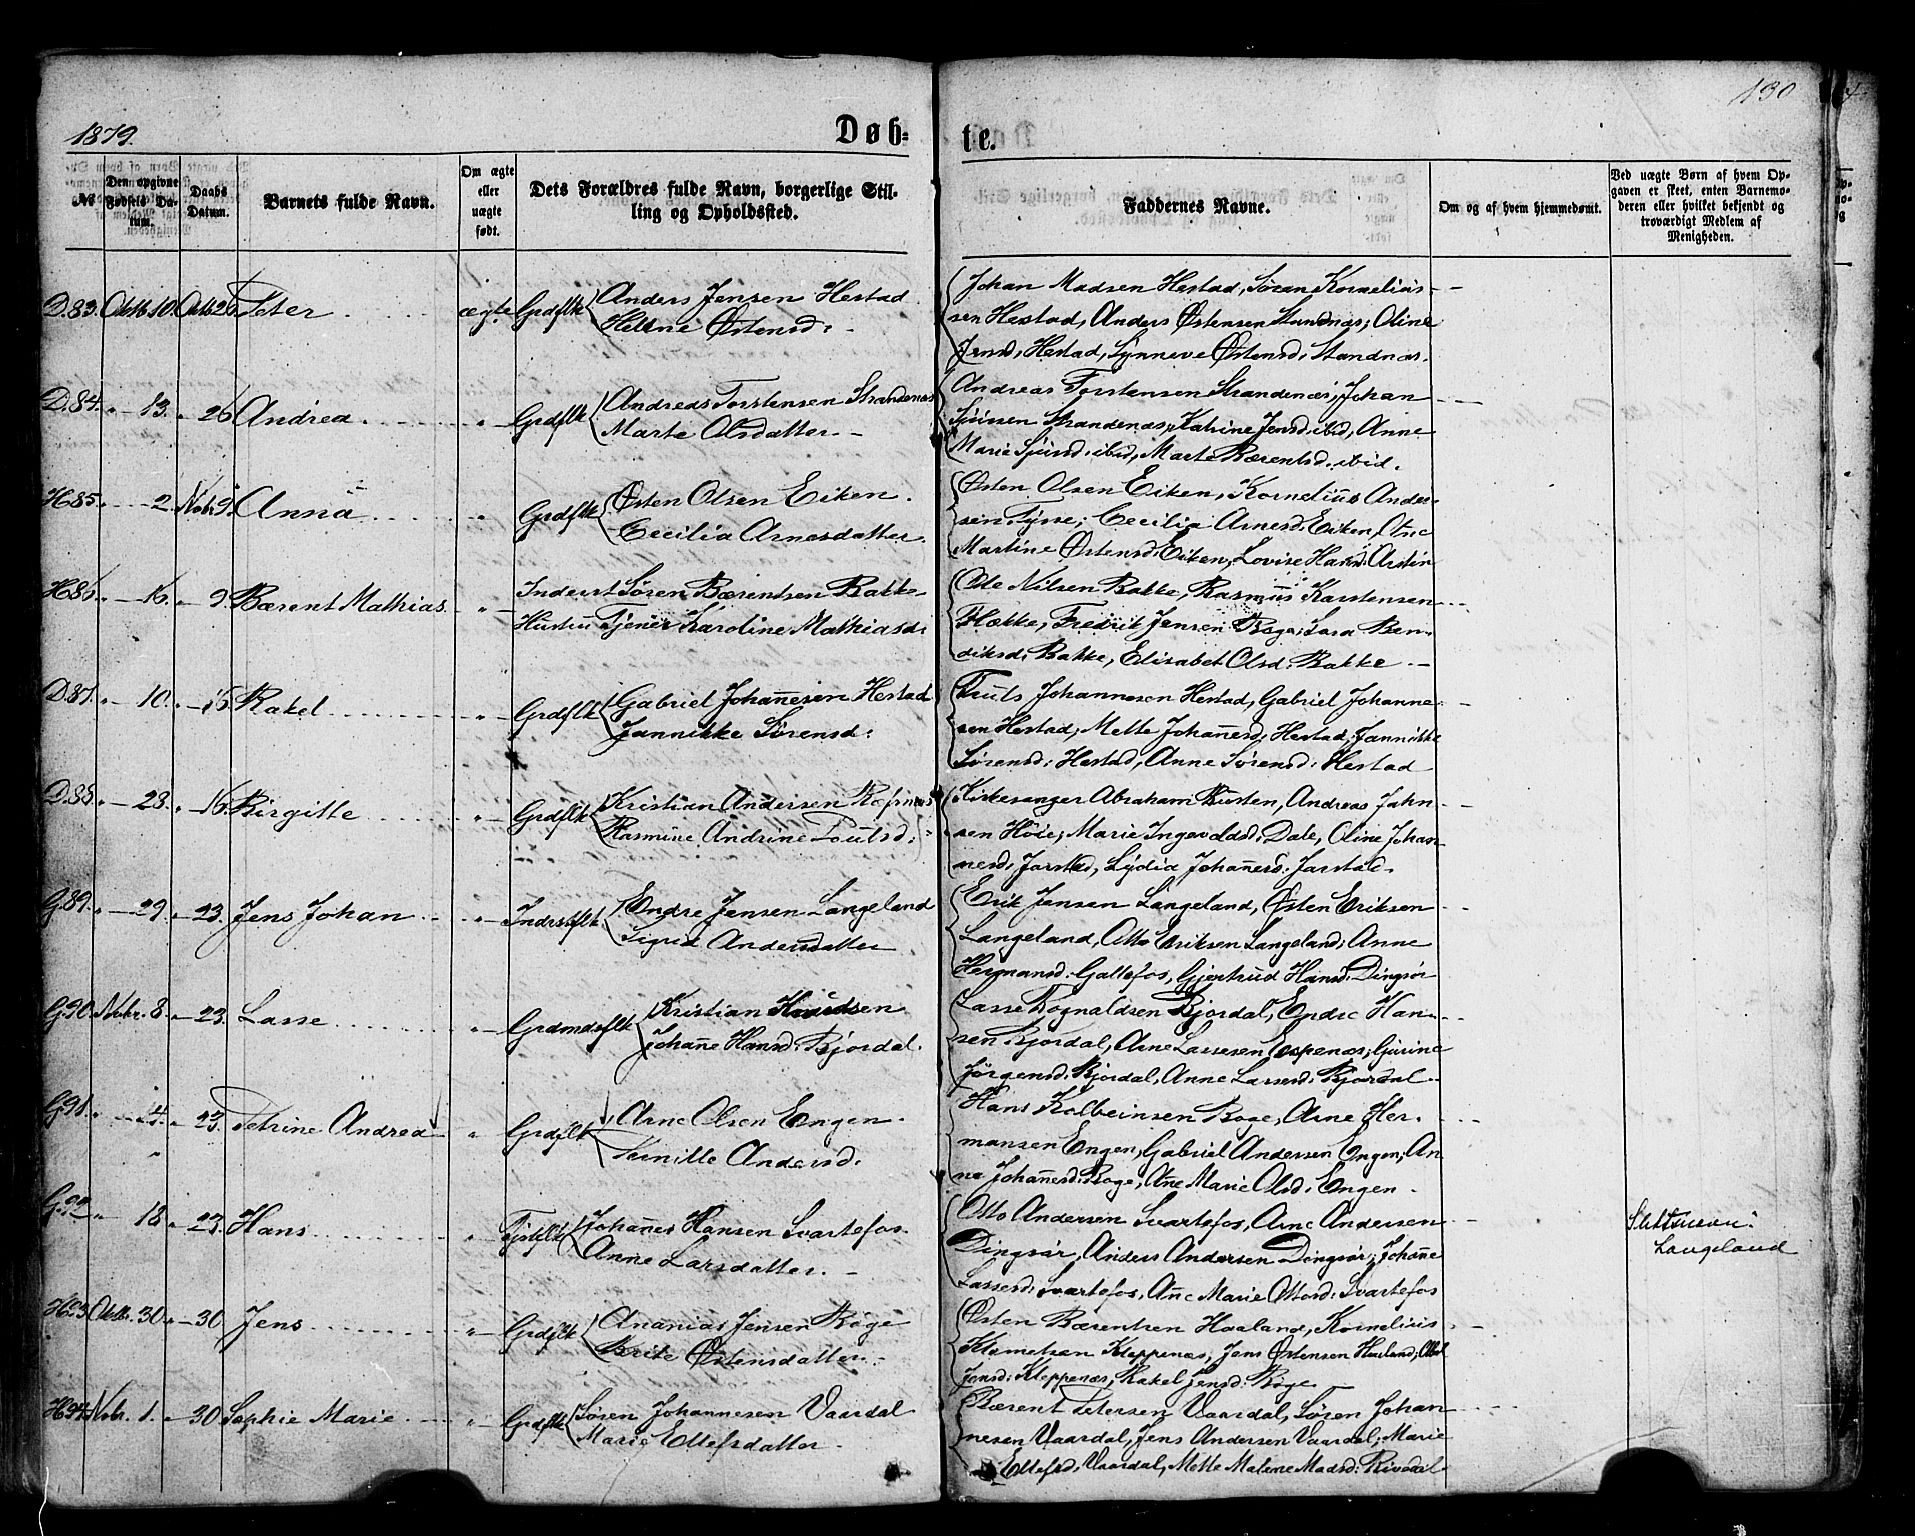 1879.
Døb-
te.
130
№
Den opgivne Fødsels Datum.
Daabs Datum.
Barnets fulde Navn.
Om ægte eller uægte født.
Dets Forældres fulde Navn, borgerlige Stilling og Opholdssted.
Faddernes Navne.
Om og af hvem hjemmedøbt.
Ved uægte Børn af hvem Opgaven er skeet, enten Barnemoderen eller hvilket bekjendt og troværdigt Medlem af Menigheden.
D.83. Oktb 10. Oktb 26 Peter ægte Grdflk Anders Jensen Hestad
Hellene Østensd:
Johan Madsen Hestad, Søren Kornelius-
sen Hestad, Anders Østensen Standnæs; Oline
Jensd, Hestad, Synneve Østensd: Standnæs.
D.84. " 13. " 26 Andrea " Grdflk Andreas Torstensen Strandenæs
Marte Olsdatter
Andreas Torstensen Strandenæs, Johan
Sjursen Strandenæs, Katrine Jensd. ibid, Anne
Marie Sjursd: ibid, Marte Bærentsd. ibid.
H85. " 2. Nobr 9. Anna " Grdflk Østen Olsen Eiken
Cecilia Arnesdatter
Østen Olsen Eiken, Kornelius Ander-
sen Tysse; Cecilia Arnesd. Eiken, Ane
Martine Østensd. Eiken, Lovise Hans:
H86. " 16. " 9. Bærent Mathias " Inderst Søren Bærentsen Bakke
Hustru Tjener Karoline Mathiasd:
Ole Nilsen Bakke, Rasmus Karstensen
Flække, Fredrik Jensen Bøge; Sara Ben-
diksd: Bakke, Elisabet Olsd: Bakke
D.87. " 10. " 16. Rakel " Grdflk Gabriel Johannesen Hestad
Jannikke Sørensd:
Truls Johannesen Hestad, Gabriel Johanne-
sen Hestad; Mette Johannesd: Hestad, Jannikke
Sørensd: Hestad, Anne Sørensd: Hestad
D.88. " 28. " 16. Birgitte " Grdflk Kristian Andersen
Rasmine Andrine Poulsd:
Kirkesanger Abraham Austen, Andreas Jahn-
sen Høie; Marie Ingevaldsd: Dale, Oline Johan-
nesd: Jarstad, Lydia Johannesd: Jarstad.
G.89. " 29. " 23. Jens Johan " Indrstflk Endre Jensen Langeland
Sigrid Andersdatter
Erik Jensen Langeland, Østen Eriksen
Langeland, Otto Eriksen Langeland; Anne
Hermansd. Gallefos, Gjertrud Hansd: Dingsør
G.90. Nobr. 8. " 23. Lasse " Grdmdsflk Kristian
Johanne Hansd: Bjordal.
Lasse Rognaldsen Bjordal, Endre Han-
sen Bjordal, Arne Lassesen Espenæs; Gurine
Jørgensd: Bjordal, Anne Lassesd: Bjordal
G.91. " 14. " 23. Petrine Andrea " Grdflk Arne Olsen Engen.
Pernille Andersd.
Hans Kolbeinsen Bøge, Arne Her-
mansen Engen, Gabriel Andersen Engen; An-
na Johannesd: Bøge, Ane Marie Olsd: Engen.
G.92 " 18. " 23. Hans " Johannes Hansen Svartefos.
Anne Larsdatter.
Otto Andersen Svartefos, Arne Andersen
Dingsør, Anders Andersen Dingsør; Johanne
Lassesd: Svartefos, Ane Marie Ottosd: Svartefos
Langeland
H93 Oktbr. 30. " 30 Jens " Grdflk Ananias Jensen Bøge
Brite Østensdatter.
Østen Bærentsen Haaland, Kornelius
Klemetsen Kleppenæs, Jens Østensen Haaland;
Jensd: Kleppenæs, Rakel Jensd: Bøge
H94. Nobr. 1. " 30 Sophie Marie " Grdflk Søren Johannesen Vaardal
Marie Ellefsdatter
Bærent Petersen Vaardal, Søren Johan-
nesen Vaardal, Jens Andersen Vaardal; Marie
Ellefsd, Vaardal, Mette Malene Madsd: Rivedal